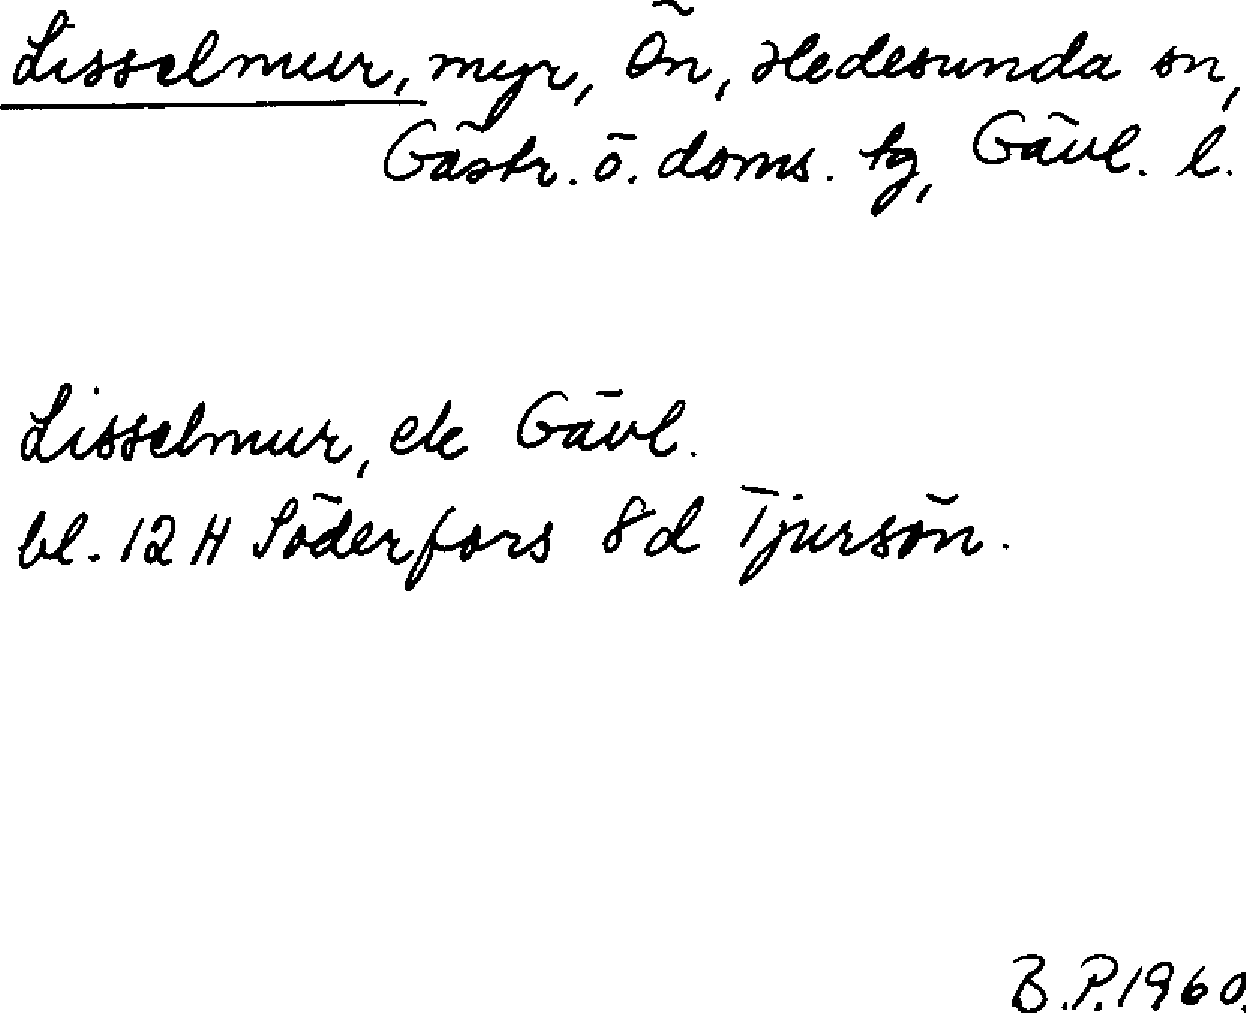 Lisselmur, myr, Ön, Hedesunda sn,
Gästr. ö. doms. tg, Gävl. l.
Lisselmur, ek Gävl.
bl. 12 H Söderfors 8d Tjursön.
B.P. 1960.